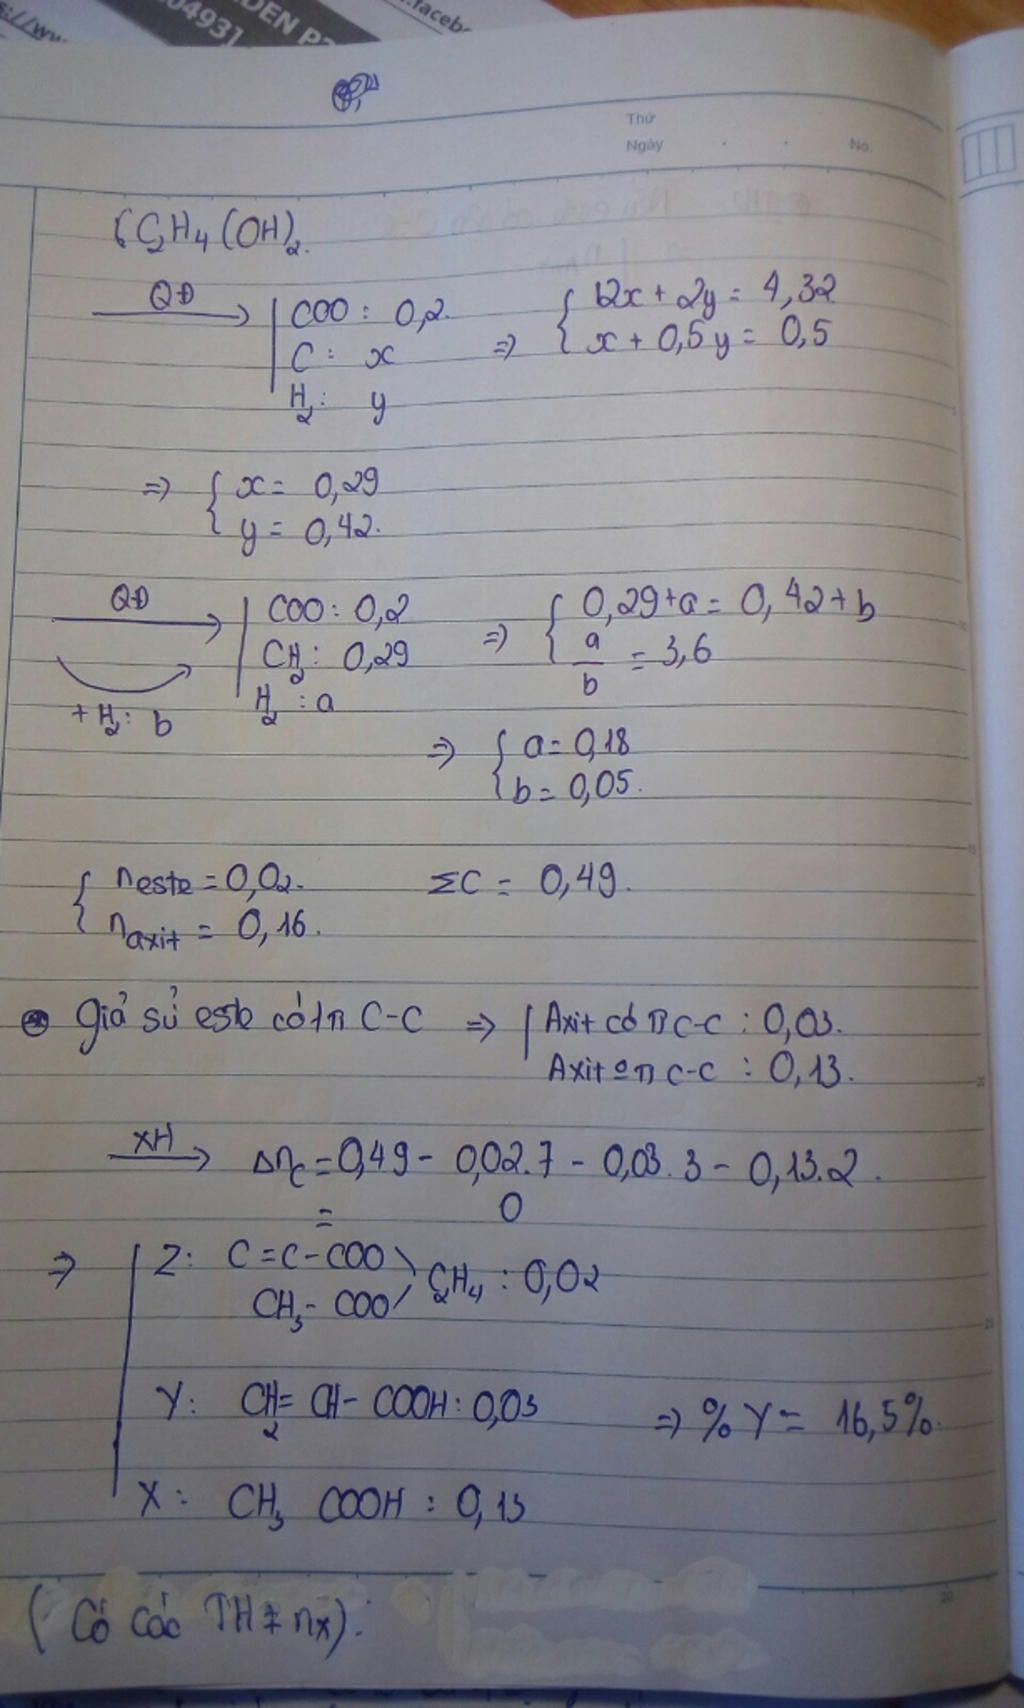 s://ww
04931
DEN P2
.faceb
Thứ
Ngày
No.
C₂H₄(OH)₂.
QĐ
COO : 0,2.
C : x
H₂ : y
=> { 12x + 2y = 4,32
x + 0,5y = 0,5
=> { x = 0,29
y = 0,42.
QĐ
+ H₂ : b
COO : 0,2
CH₂ : 0,29
H₂ : a
=> { 0,29+a = 0,42+b
a/b = 3,6
=> { a = 0,18
b = 0,05.
{ neste = 0,02. ΣC = 0,49.
naxit = 0,16.
Giả sử este có 1π C-C => | Axit có π C-C : 0,03.
Axit 0π C-C : 0,13.
XH → ΔnC = 0,49 - 0,02.7 - 0,03.3 - 0,13.2.
= 0
=> | Z: C=C-COO
CH₃-COO
C₂H₄ : 0,02
Y: CH₂=CH-COOH : 0,03 => %Y = 16,5%.
X: CH₃ COOH : 0,13
(Có các TH ≠ nx).